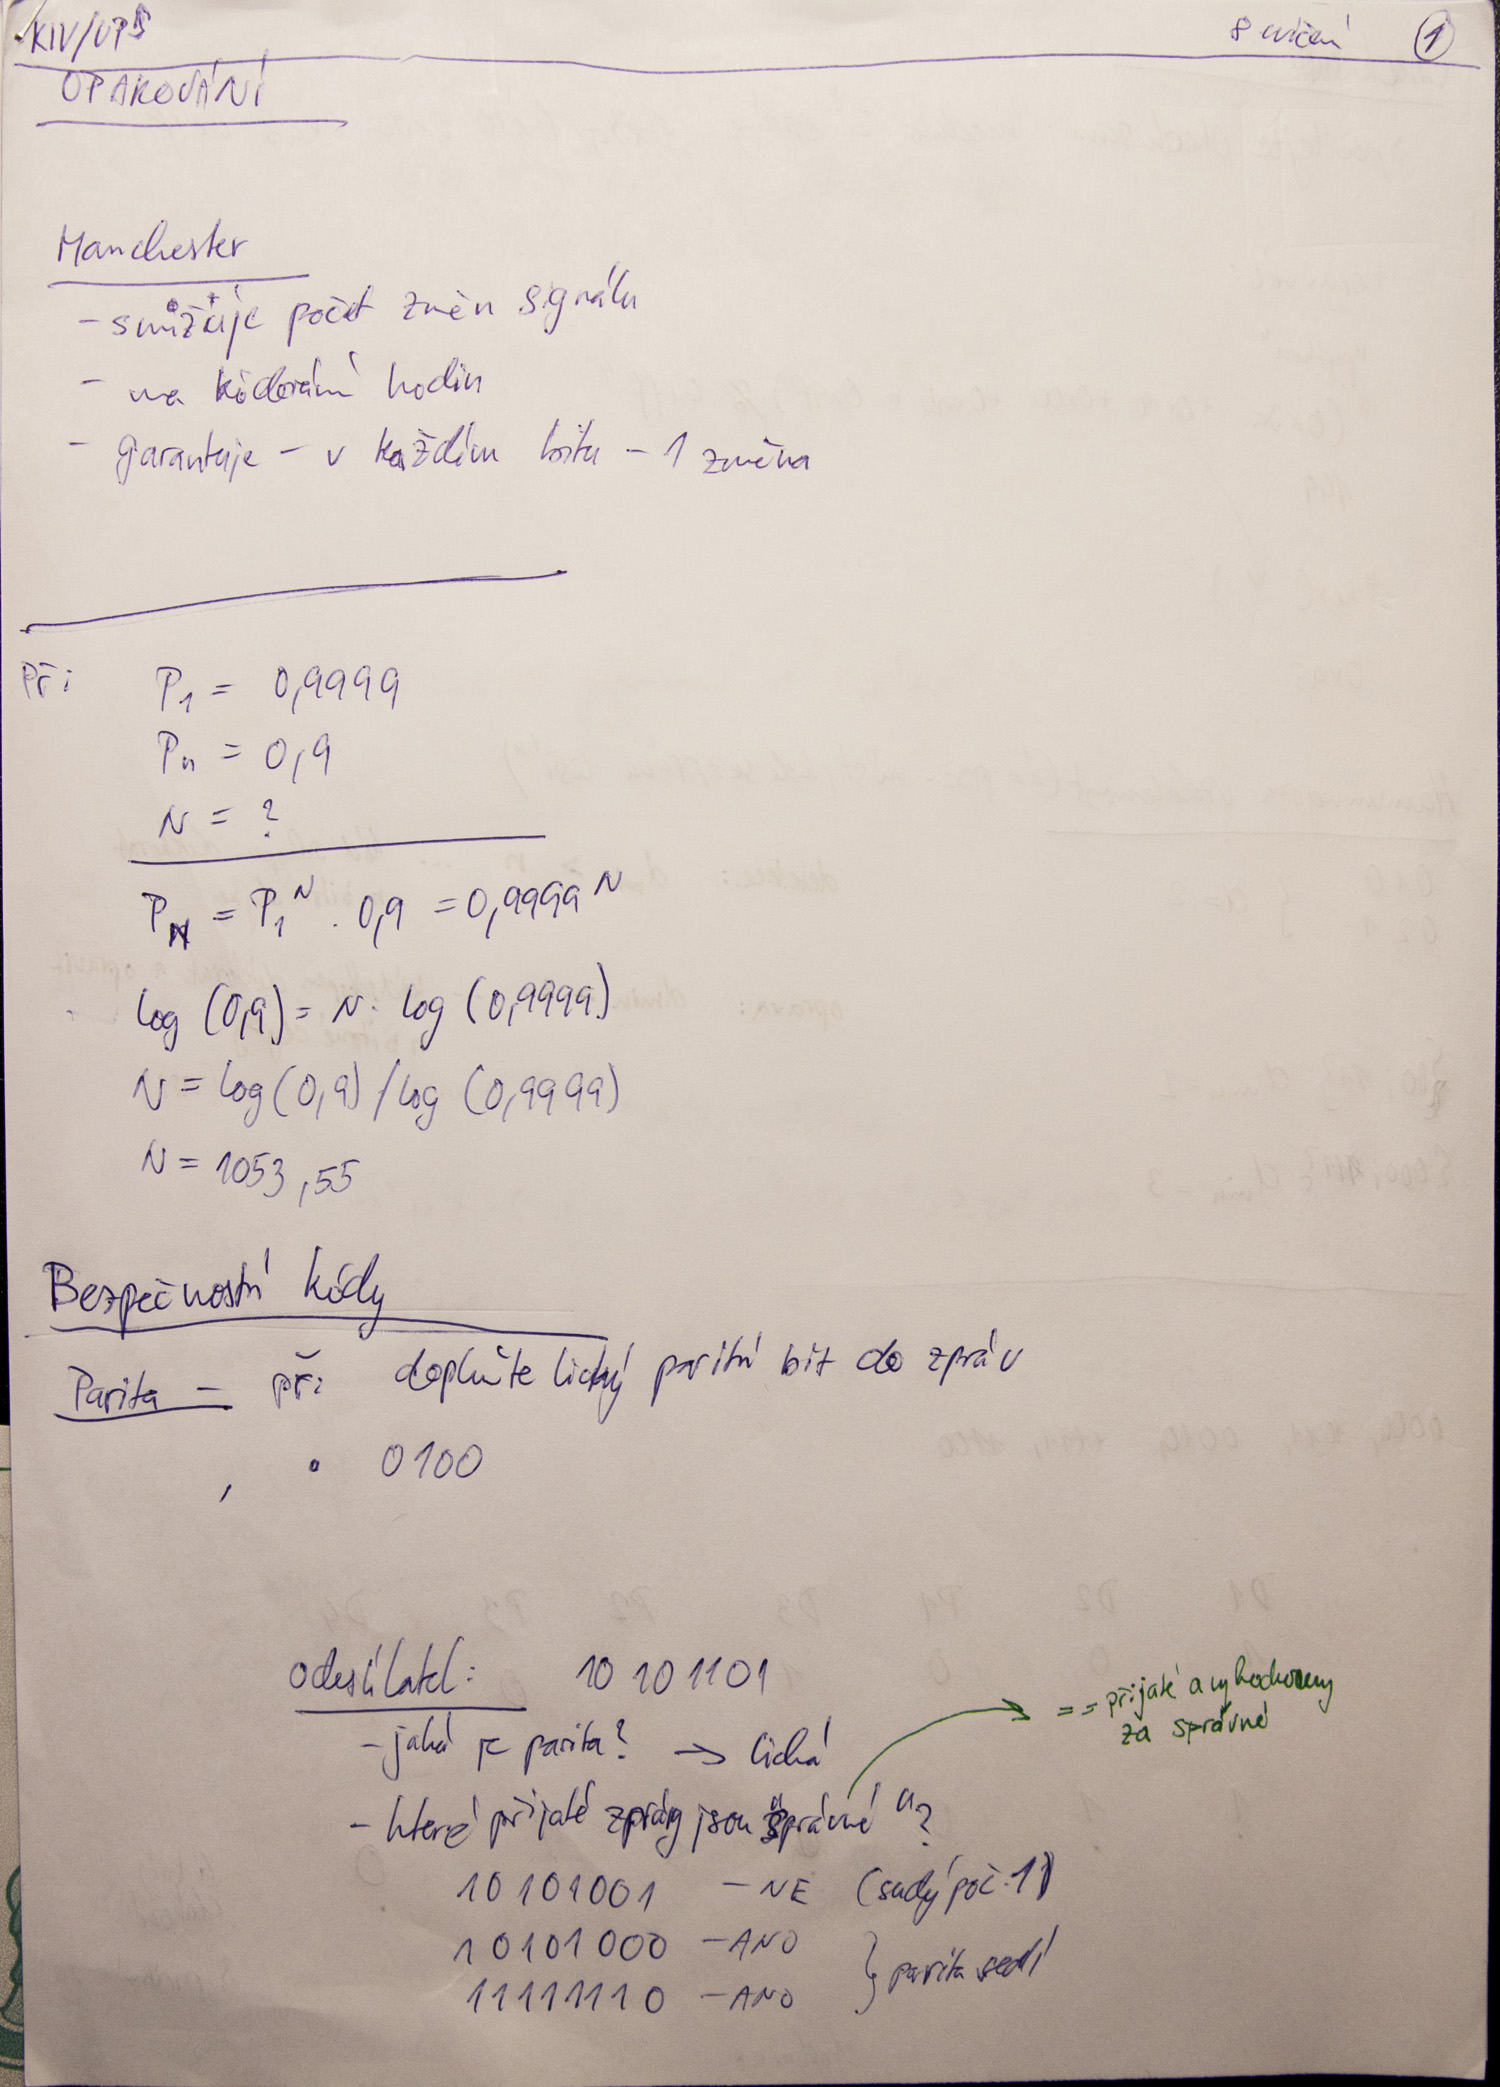 KIV/UPS
8 cvičení 1
OPAKOVÁNÍ
Manchester
- snižuje počet změn signálu
- na kódování hodin
- garantuje - v každém bitu - 1 změna
Př:
P1 = 0,9999
Pn = 0,9
N = ?
PN = P1^N . 0,9 = 0,9999^N
log (0,9) = N · log (0,9999)
N = log(0,9) / log (0,9999)
N = 1053,55
Bezpečnostní kódy
Parita - př: doplňte lichý paritní bit do zpráv
• 0100
Odesílatel: 10101101
- jaká je parita? → lichá
== přijaté a vyhodnoceny
za správné
- které přijaté zprávy jsou "správné"?
10101001 - NE (sudý poč. 1)
10101000 - ANO
11111110 - ANO
} parita sedí